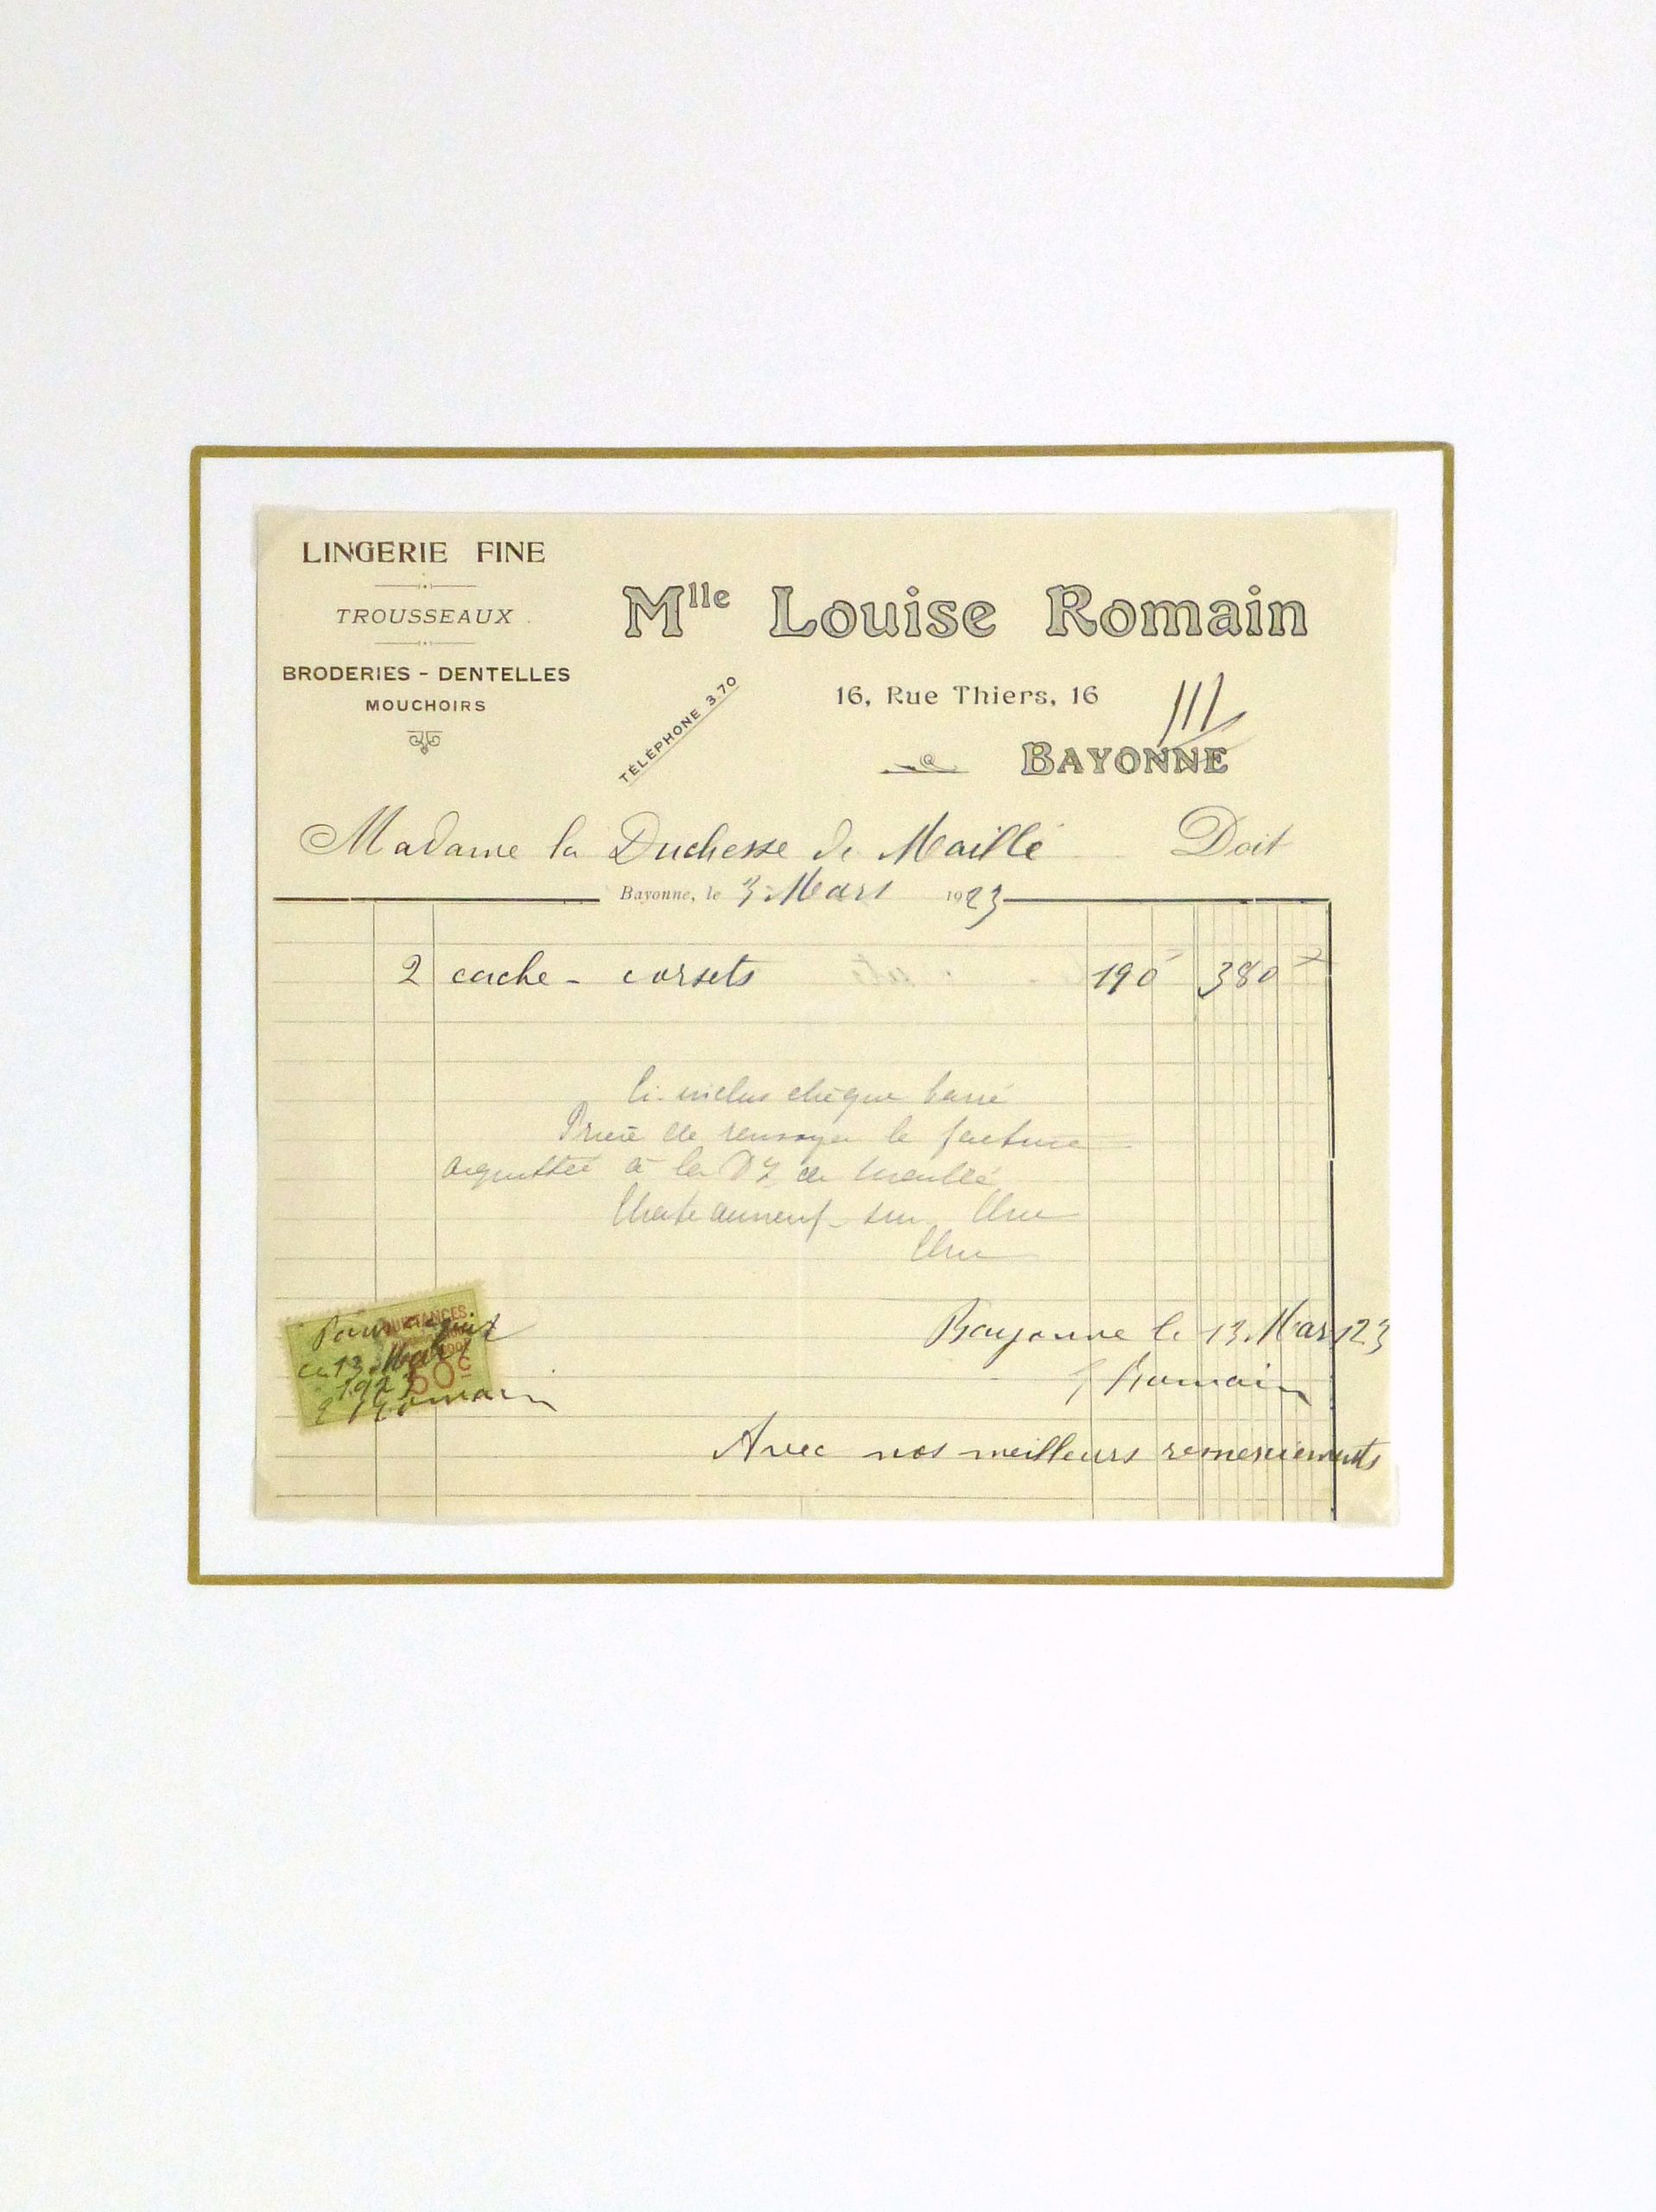 LINGERIE FINE
TROUSSEAUX
BRODERIES - DENTELLES
MOUCHOIRS
Mlle Louise Romain
TÉLÉPHONE 3.70
16, Rue Thiers, 16
BAYONNE
Madame la Duchesse de Maillé Doit
Bayonne, le 3 Mars 1923
2 cache - corsets 190 380
Ci-inclus chèque barré
Prière de renvoyer la facture
acquittée à la de Maillé
Chateauneuf - sur Cher
Cher
QUITTANCES
50c
Pour acquit
ce 13 Mars
1923
Romain
Bayonne le 13 Mars 23
Romain
Avec nos meilleurs remerciements